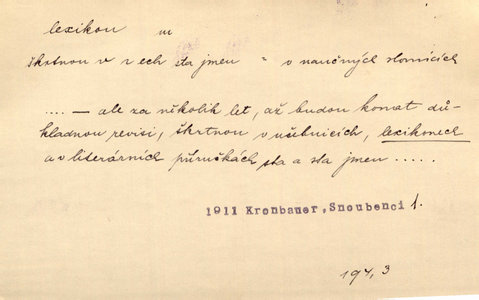 lexikon m
škrtnou v z ech sta jmen " v naučných slovnících
.... — ale za několik let, až budou konat dů-
kladnou revisi, škrtnou v učebnicích, lexikonech
a v literárních příručkách sta a sta jmen .....
1911 Kronbauer, Snoubenci 1.
194, 3